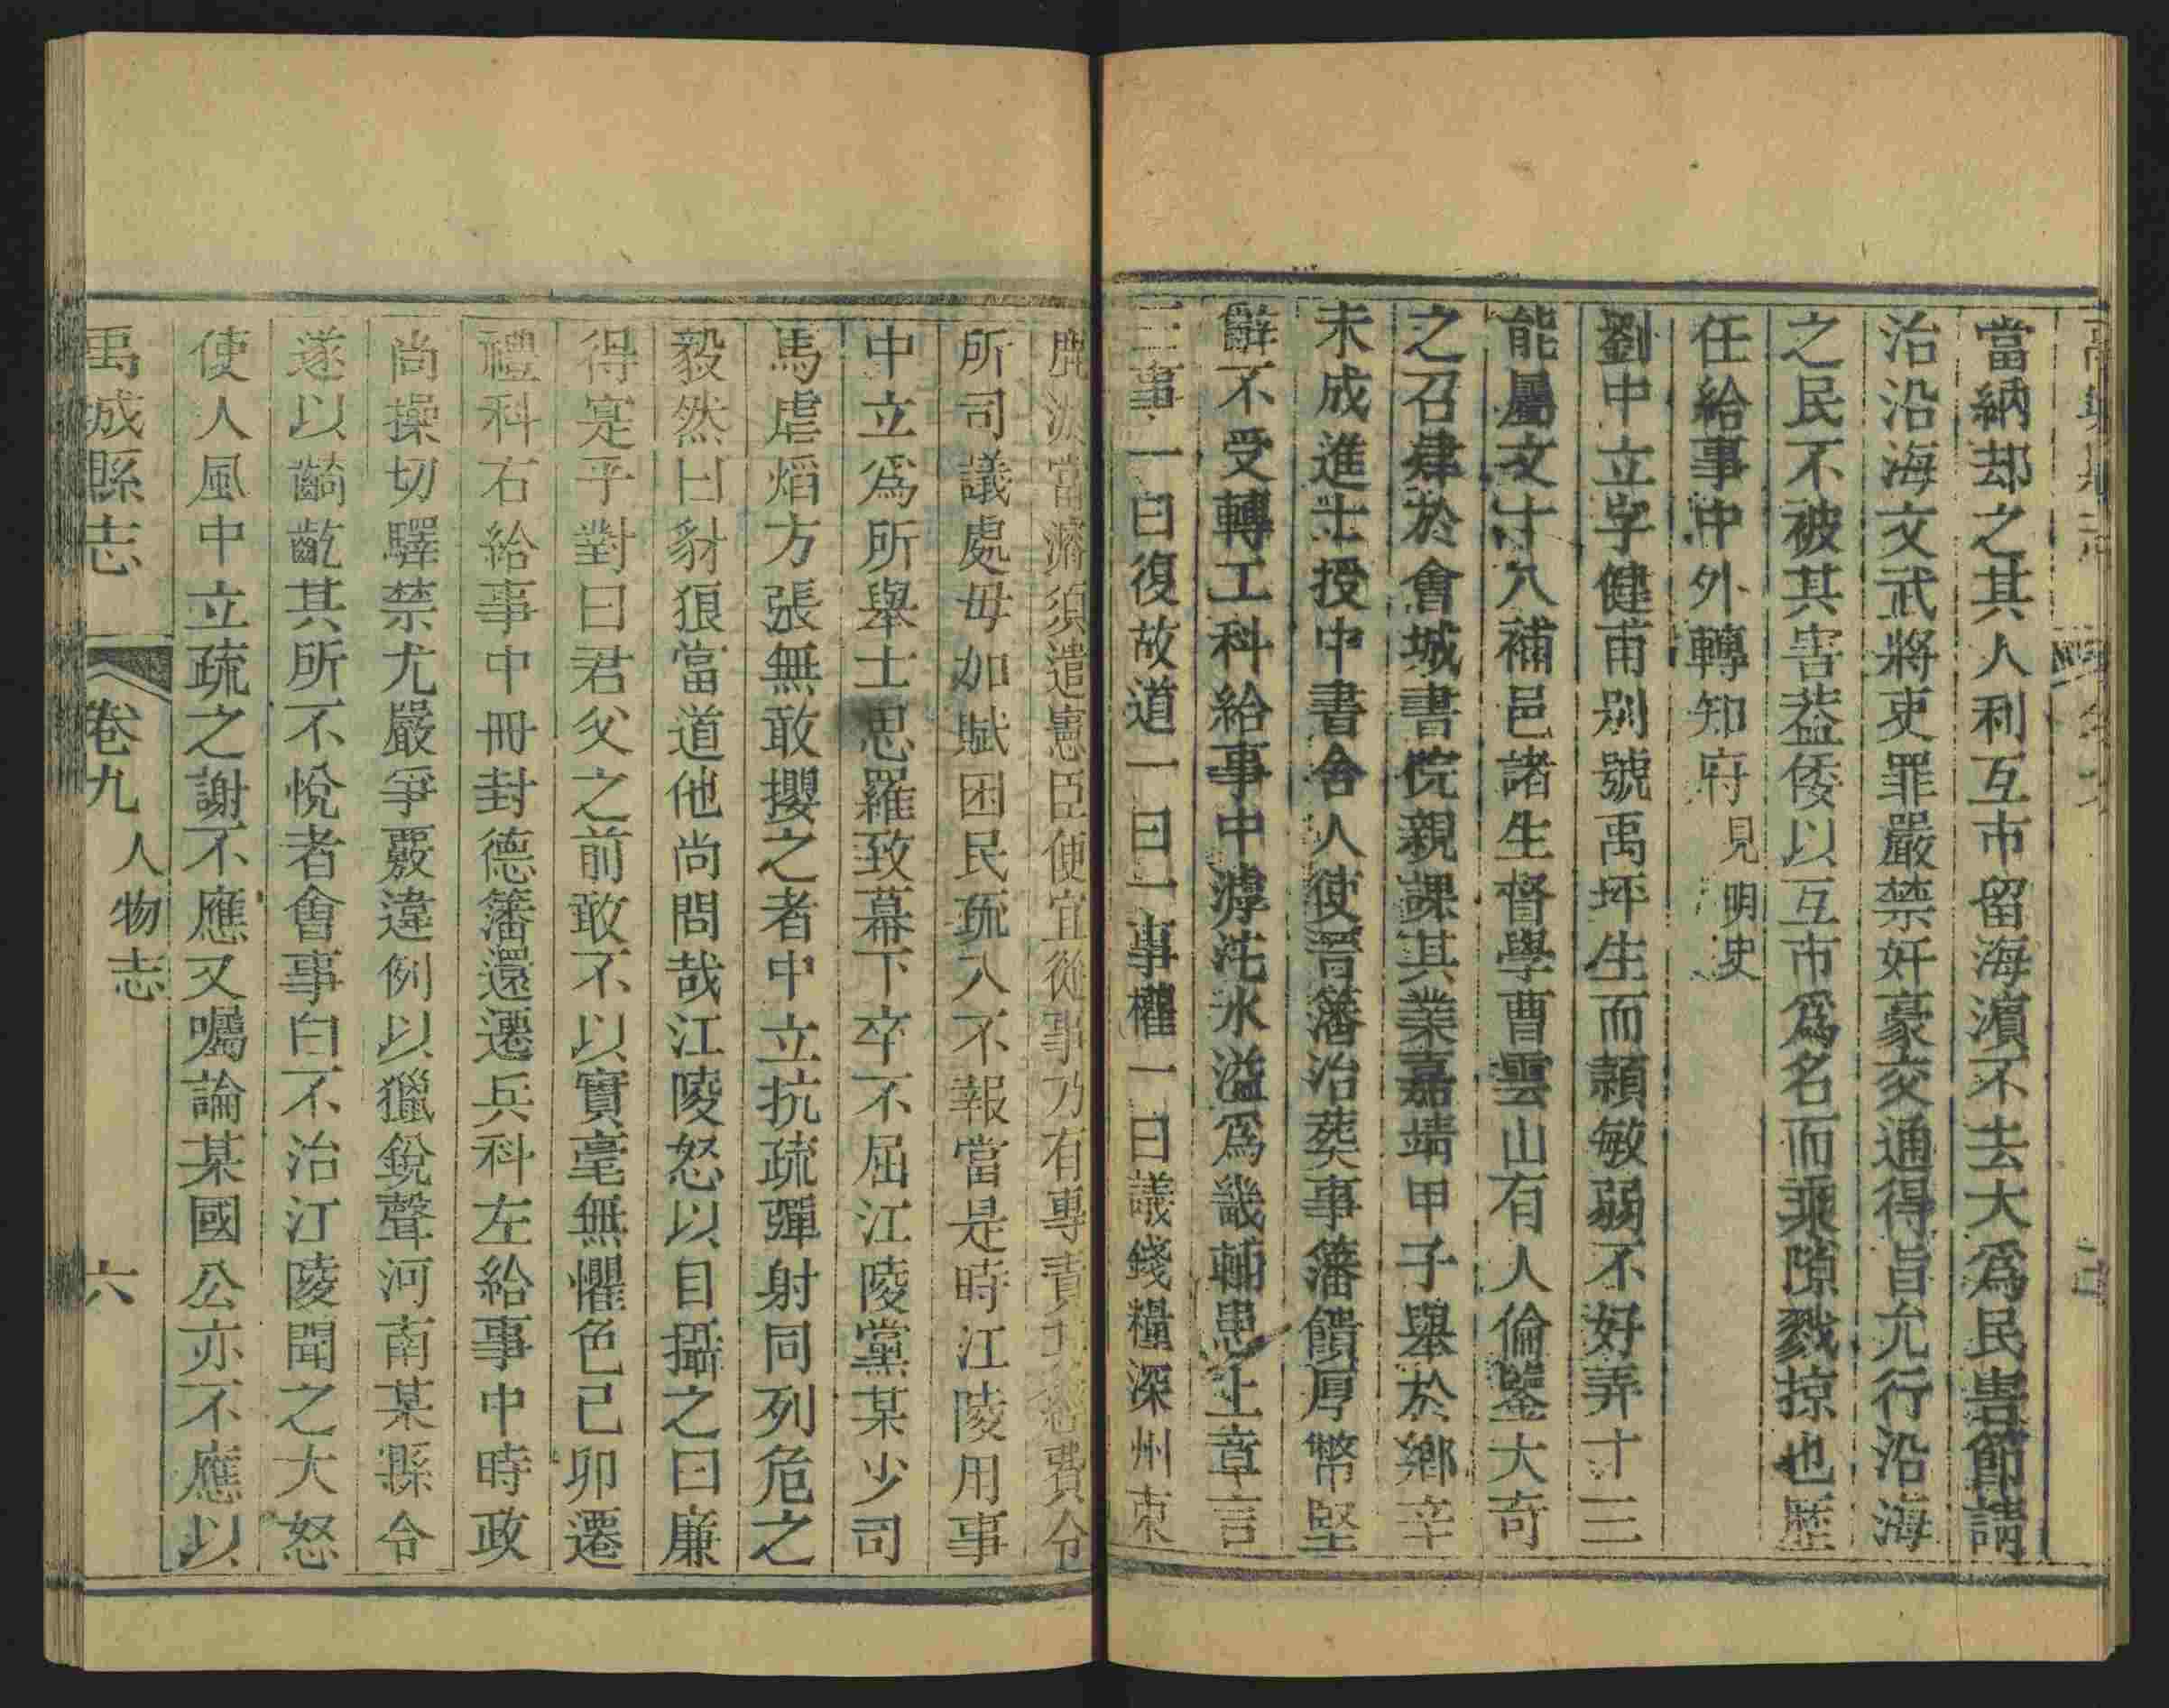 當納却之其人利互市留海濵不去大爲民害節請
治沿海文武將吏罪嚴禁奸豪交通得旨允行沿海
之民不被其害葢倭以互市爲名而乘隙戮掠也歷
任給事中外轉知府見明史
劉中立字健甫别號禹坪生而頴敏弱不好弄十三
能屬文十八補邑諸生督學曹雲山有人倫鑒大奇
之召肄於會城書院親課其業嘉靖甲子舉於鄉辛
未成進士授中書舍人使晉藩治葬事藩饋厚幣堅
辭不受轉工科給事中滹沱水溢爲畿輔患上章言
三事一曰復故道一曰一事權一曰議錢糧深州束
當濬須遣憲臣使宜從事乃有專責 費令
所司議處毋加賦困民疏入不報當是時江陵用事
中立爲所舉士思羅致幕下卒不屈江陵黨某少司
馬虐熖方張無敢攖之者中立抗疏彈射同列危之
毅然曰豺狼當道他尚問哉江陵怒以目攝之曰廉
得寔乎對曰君父之前敢不以實毫無懼色己卯遷
禮科右給事中冊封德藩還遷兵科左給事中時政
尚操切驛禁尤嚴爭覈違例以獵銳聲河南某縣令
遂以齮齕其所不悅者會事白不治江陵聞之大怒
使人風中立疏之謝不應又囑論某國公亦不應以
禹城縣志 卷九 人物志 六